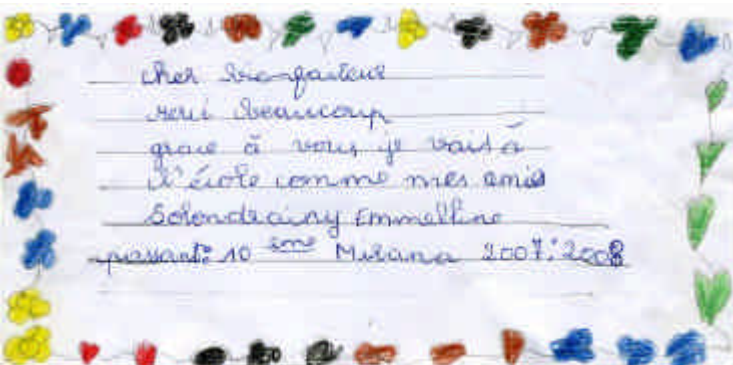 cher Bienfaiteur
merci beaucoup
grace à vous, je vait à
l'école comme mes amis
Solondrainy Emmelline
passant: 10 ème Mirana 2007: 2008